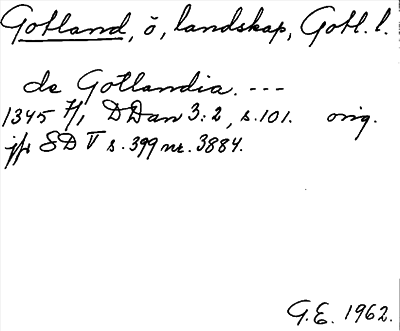 Gotland, ö, landskap, Gotl. l.
de Gotlandia. ---
1345 7/1 DDan 3:2, s. 101. orig.
jfr SD V s. 399 nr. 3884.
G.E. 1962.